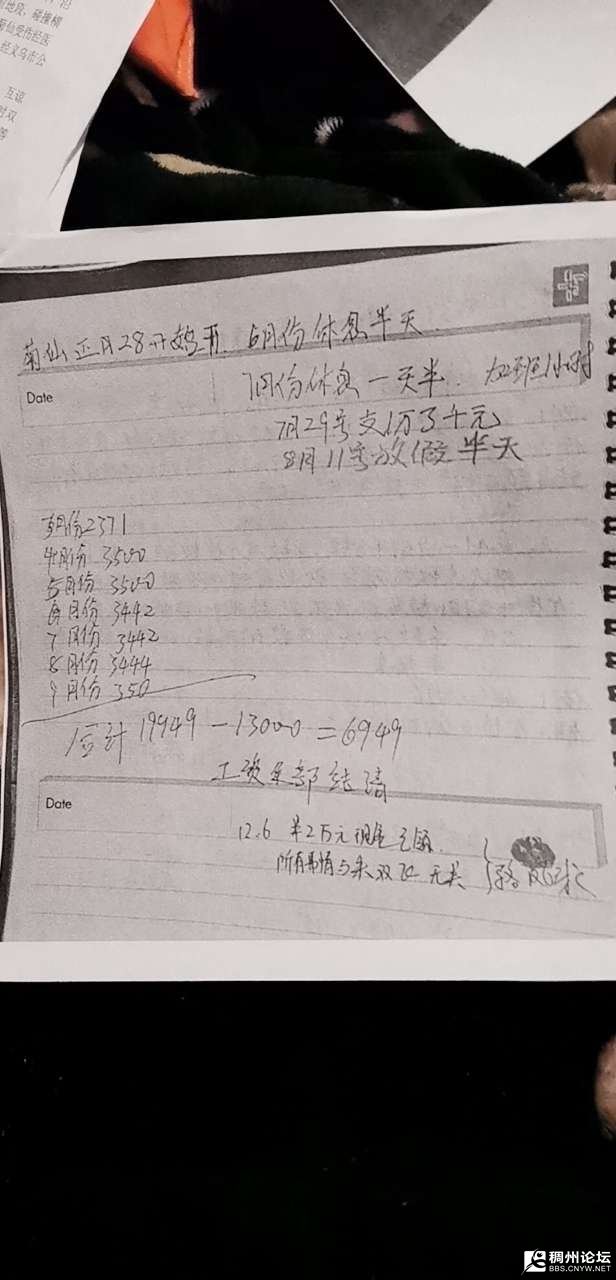 地段，碰撞柳
菊仙受伤经医
经义乌市公
互谅
对双
等
菊仙正月28开始上班. 6月份休息半天.
Date
7月份休息一天半. 加班1小时
7月29号支1万3千元
8月11号放假半天
3月份2371
4月份 3500
5月份 3500
6月份 3442
7月份 3442
8月份 3444
9月份 350
合计 19949 - 13000 = 6949
工资全部结清
Date
12.6 2万元现金
所有事情与朱双 无关
稠州论坛
BBS.CNYW.NET